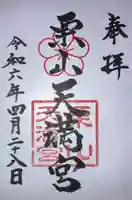 奉拝
栗山天満宮
令和六年四月二十八日